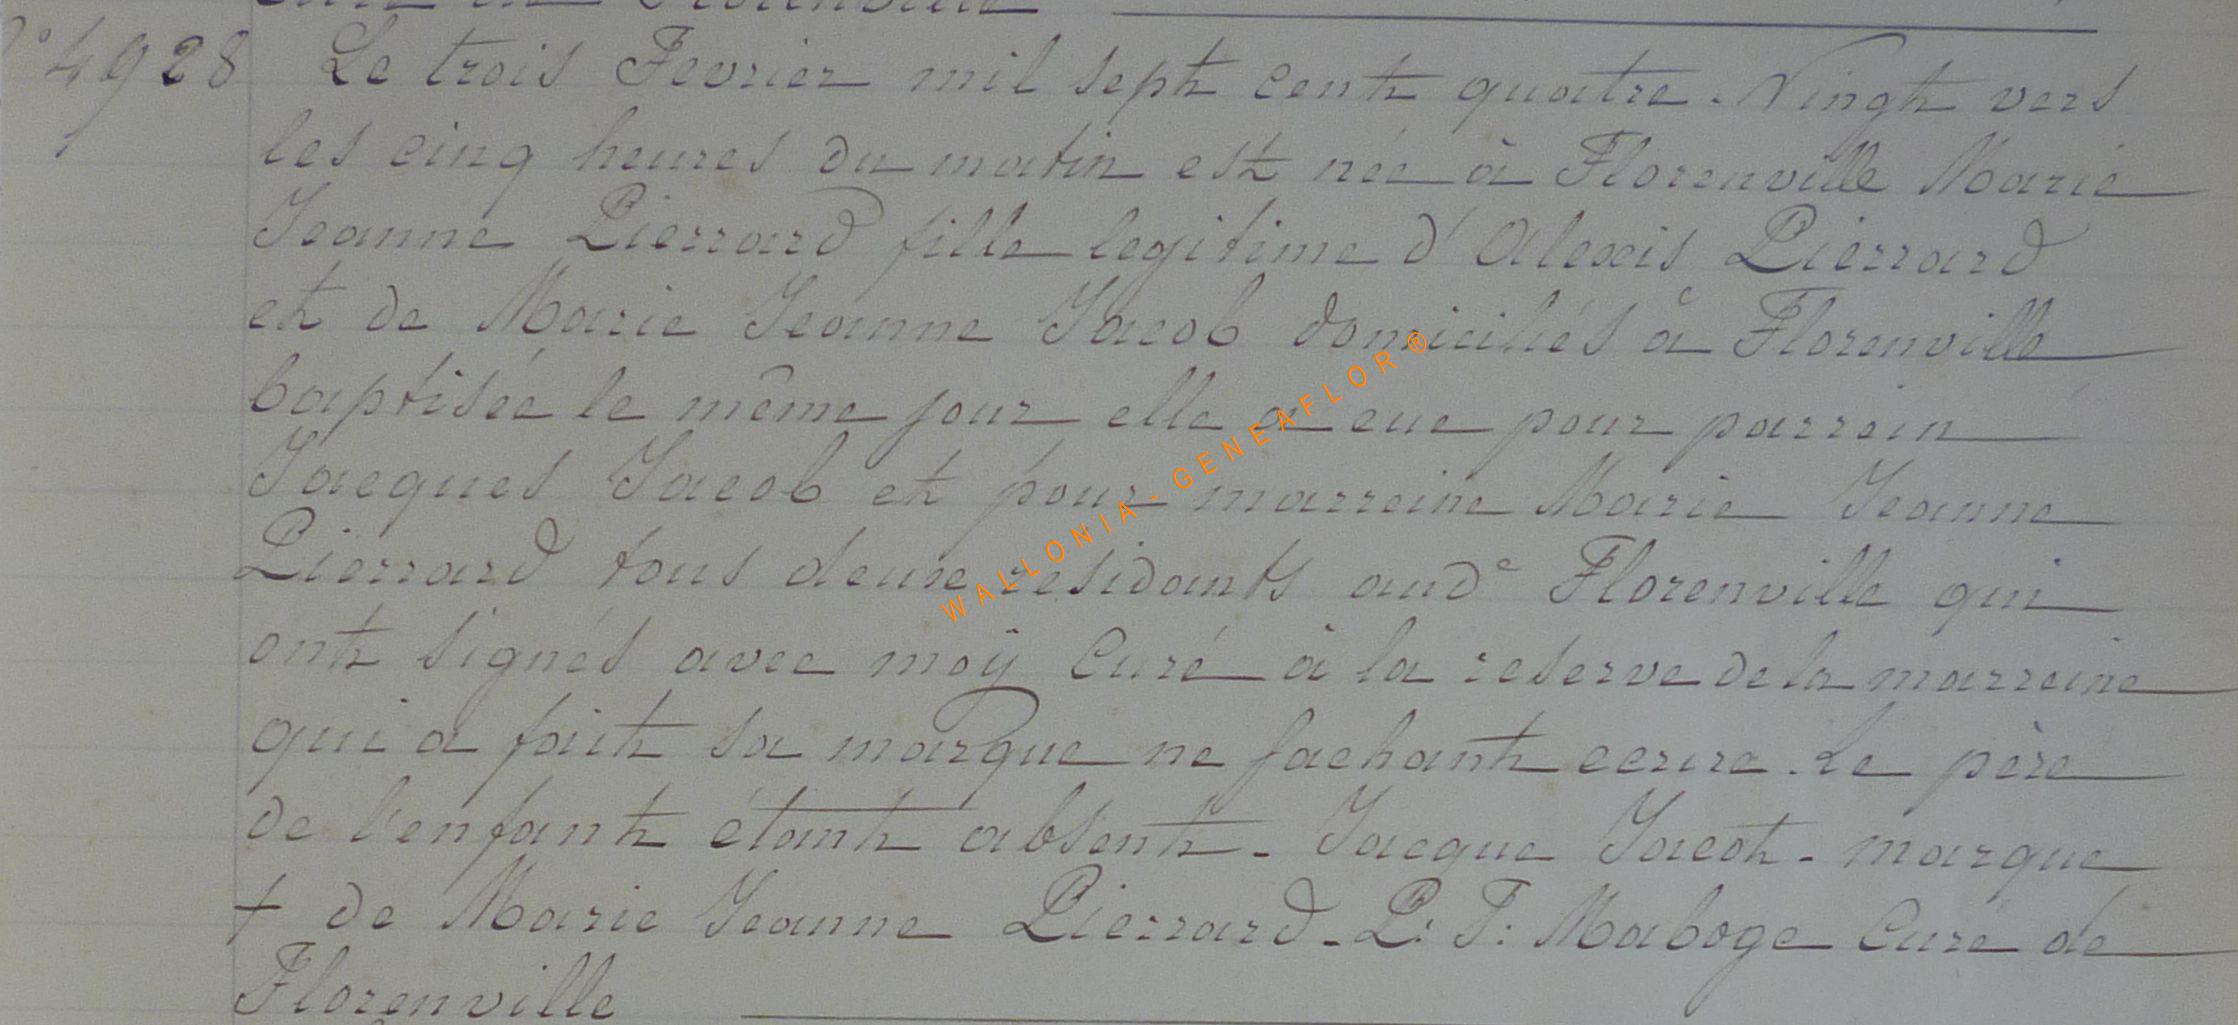 Curé de Florenville
N° 4928 Le trois Fevrier mil sept cent quatre-Vingt vers
les cinq heures du matin est née à Florenville Marie
Jeanne Pierrard fille legitime d'Alexis Pierrard
et de Marie Jeanne Jacob domiciliés à Florenville
baptisée le même jour elle a eue pour parrein
Jacques Jacob et pour marreine Marie Jeanne
Pierrard tous deux residants aud^e Florenville qui
ont signés avec moÿ Curé à la reserve de la marreine
qui a fait sa marque ne sachant ecrire. Le père
de l'enfant étant absent - Jacque Jacob - marque
+ de Marie Jeanne Pierrard - P: T: Maboge Curé de
Florenville
WALLONIA - GENEAFLOR ®